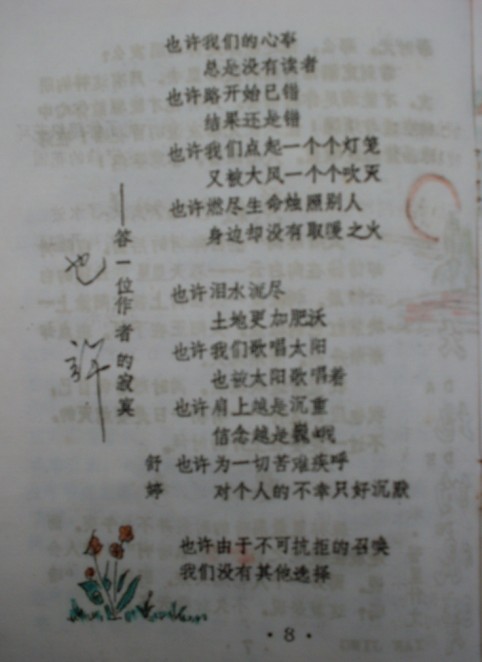 也许
——答一位作者的寂寞
舒婷
也许我们的心事
总是没有读者
也许路开始已错
结果还是错
也许我们点起一个个灯笼
又被大风一个个吹灭
也许燃尽生命烛照别人
身边却没有取暖之火
也许泪水流尽
土地更加肥沃
也许我们歌唱太阳
也被太阳歌唱着
也许肩上越是沉重
信念越是巍峨
也许为一切苦难疾呼
对个人的不幸只好沉默
也许由于不可抗拒的召唤
我们没有其他选择
·8·